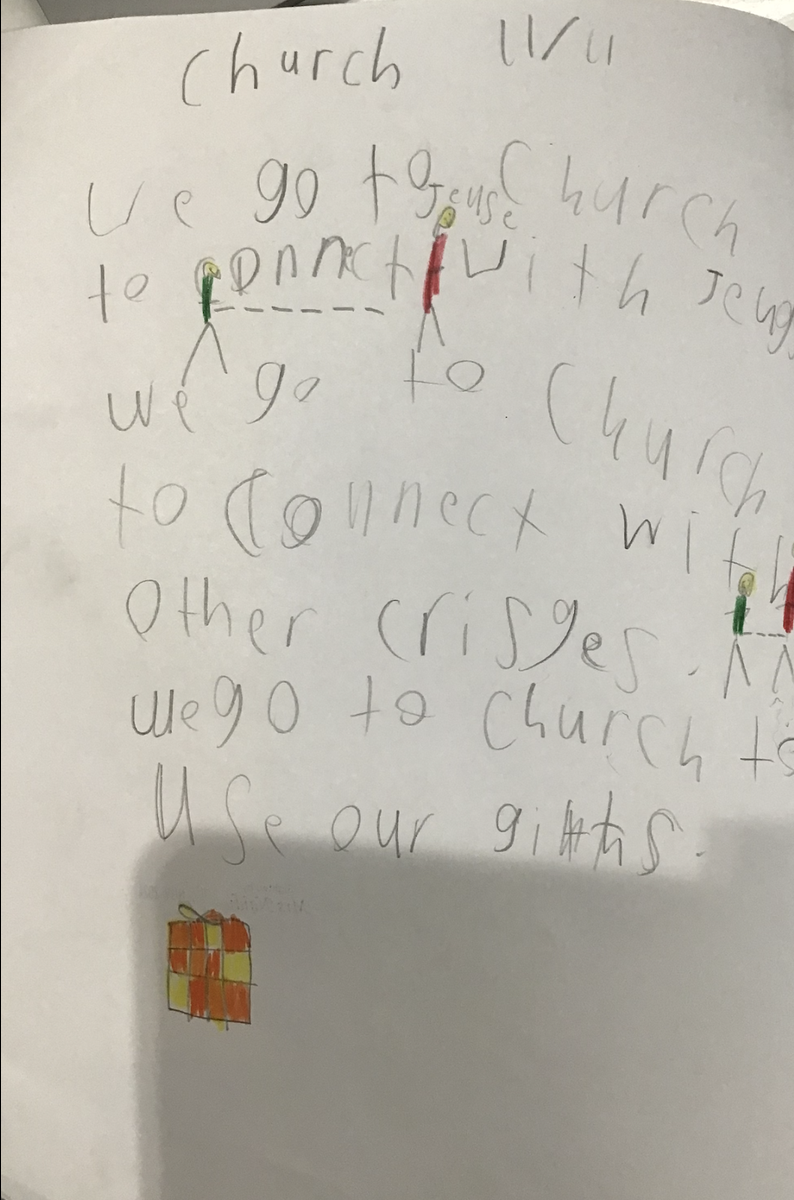 Church
We go to Church
Jeuse
to connect with Jeug
we go to Church
to Connect with
other crisges.
we go to church to
use our giths.